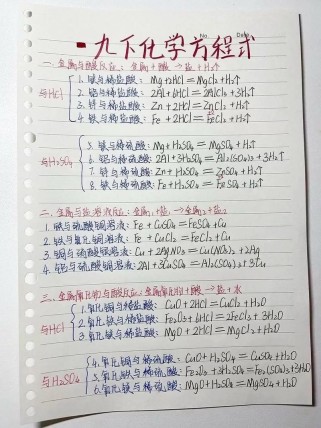 九下化学方程式
一. 金属与酸反应: 金属+酸 → 盐+H₂↑
与HCl
1. 镁与稀盐酸: Mg+2HCl=MgCl₂+H₂↑
2. 铝与稀盐酸: 2Al+6HCl=2AlCl₃+3H₂↑
3. 锌与稀盐酸: Zn+2HCl=ZnCl₂+H₂↑
4. 铁与稀盐酸: Fe+2HCl=FeCl₂+H₂↑
与H₂SO₄
5. 镁与稀硫酸: Mg+H₂SO₄=MgSO₄+H₂↑
6. 铝与稀硫酸: 2Al+3H₂SO₄=Al₂(SO₄)₃+3H₂↑
7. 锌与稀硫酸: Zn+H₂SO₄=ZnSO₄+H₂↑
8. 铁与稀硫酸: Fe+H₂SO₄=FeSO₄+H₂↑
二. 金属与盐溶液反应: 金属₁+盐₁ → 金属₂+盐₂
1. 铁与硫酸铜溶液: Fe+CuSO₄=FeSO₄+Cu
2. 铁与氯化铜溶液: Fe+CuCl₂=FeCl₂+Cu
3. 铜与硝酸银溶液: Cu+2AgNO₃=Cu(NO₃)₂+2Ag
4. 铝与硫酸铜溶液: 2Al+3CuSO₄=Al₂(SO₄)₃+3Cu
三. 金属氧化物与酸反应: 金属氧化物+酸 → 盐+水
与HCl
1. 氧化铜与稀盐酸: CuO+2HCl=CuCl₂+H₂O
2. 氧化铁与稀盐酸: Fe₂O₃+6HCl=2FeCl₃+3H₂O
3. 氧化镁与稀盐酸: MgO+2HCl=MgCl₂+H₂O
与H₂SO₄
4. 氧化铜与稀硫酸: CuO+H₂SO₄=CuSO₄+H₂O
5. 氧化铁与稀硫酸: Fe₂O₃+3H₂SO₄=Fe₂(SO₄)₃+3H₂O
6. 氧化镁与稀硫酸: MgO+H₂SO₄=MgSO₄+H₂O